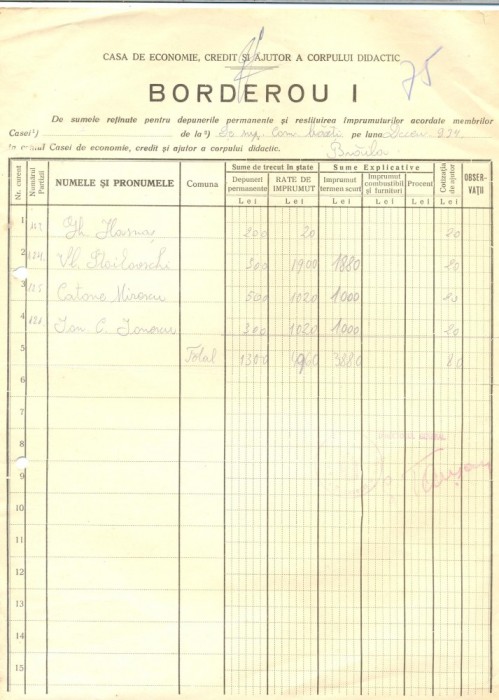 75
CASA DE ECONOMIE, CREDIT ȘI AJUTOR A CORPULUI DIDACTIC
BORDEROU I
De sumele reținute pentru depunerile permanente și restituirea împrumuturilor acordate membrilor
Casei¹) de la ²) pe luna
în contul Casei de economie, credit și ajutor a corpului didactic. Brăila
Nr. curent
Numărul Partizii
NUMELE ȘI PRONUMELE
Comuna
Sume de trecut în ștate
Depuneri permanente
RATE DE IMPRUMUT
Sume Explicative
Imprumut termen scurt
Imprumut combustibil și furnituri
Procent
Cotizația de ajutor
OBSERVAȚII
Lei Lei Lei Lei Lei Lei
1 Gh. 200 20 20
2 124. Vl. 300 1900 1880 20
3 125 Catone Mirescu 500 1020 1000 20
4 Ion C. Ionescu 300 1020 1000 20
5 Total 1300 3880 80
6
7
8
9
10
11
12
13
14
15